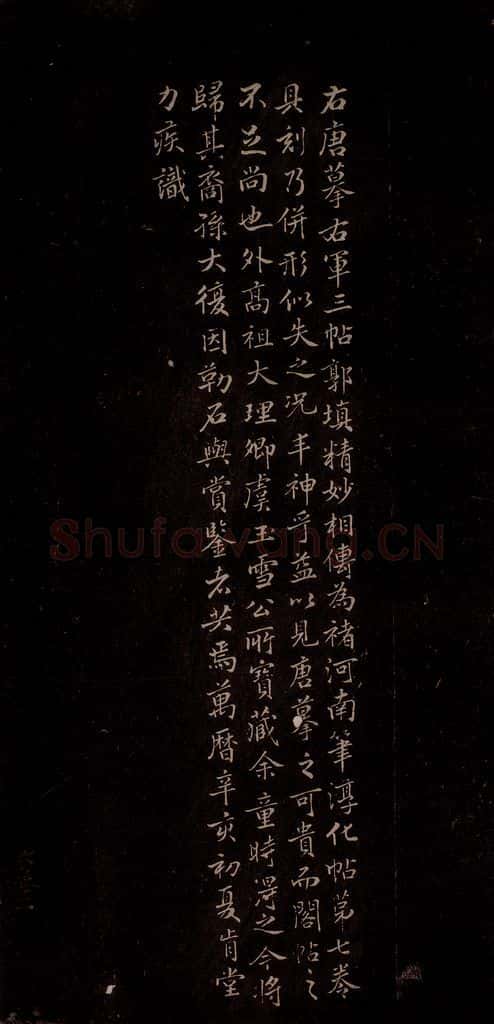 右唐摹右軍三帖郭填精妙相傳為褚河南筆淳化帖第七卷
具刻乃併形似失之况丰神乎益以見唐摹之可貴而閣帖之
不足尚也外高祖大理卿虞玉雪公所寶藏余童時得之今將
歸其裔孫大復因勒石與賞鑒者共焉萬曆辛亥初夏肯堂
力疾識
Shufawang.CN